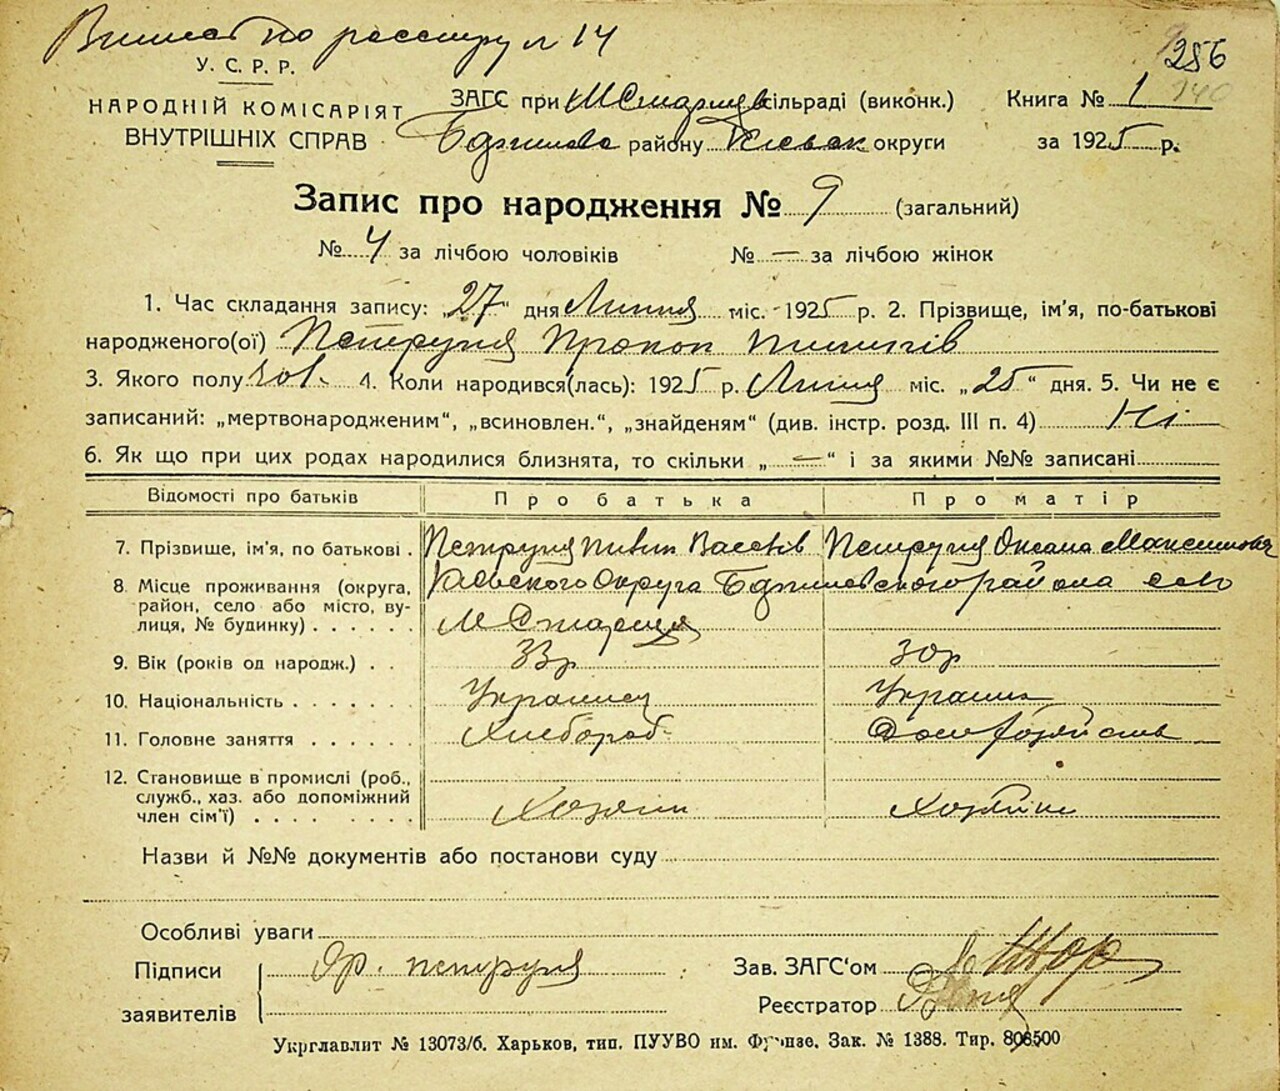 Выписат по реестру № 14
256
140
У. С. Р. Р.
НАРОДНІЙ КОМІСАРІЯТ
ВНУТРІШНІХ СПРАВ
ЗАГС при МСтариц сільраді (виконк.) Книга № 1
району Київск округи за 1925 р.
Запис про народження № 9 (загальний)
№ 4 за лічбою чоловіків № — за лічбою жінок
1. Час складання запису: „27“ дня Липня міс. 1925 р. 2. Прізвище, ім'я, по-батькові
народженого(ої) Петруня Прокоп Пилипів
3. Якого полу чол. 4. Коли народився(лась): 1925 р. Липня міс. „25“ дня. 5. Чи не є
записаний: „мертвонародженим“, „всиновлен.“, „знайденям“ (див. інстр. розд. III п. 4) Ні
6. Як що при цих родах народилися близнята, то скільки „—“ і за якими №№ записані
Відомості про батьків Про батька Про матір
7. Прізвище, ім'я, по батькові . Петруня Пилип Петруня Оксана Максимовна
8. Місце проживання (округа, район, село або місто, вулиця, № будинку) . . . . . . Киевского Округа района село
М Стариця
9. Вік (років од народж.) . . 33р 30р
10. Національність . . . . . . . Украинец Украинк
11. Головне заняття . . . . . . Хлебороб Дом хозяйств
12. Становище в промислі (роб., служб., хаз. або допоміжний член сім'ї) . . . . . . . . Хозяин Хозяйка
Назви й №№ документів або постанови суду
Особливі уваги
Підписи
заявителів
Петруня
Зав. ЗАГС'ом
Реєстратор
Укрглавлит № 13073/б. Харьков, тип. ПУУВО им. Фрунзе. Зак. № 1388. Тир. 808500